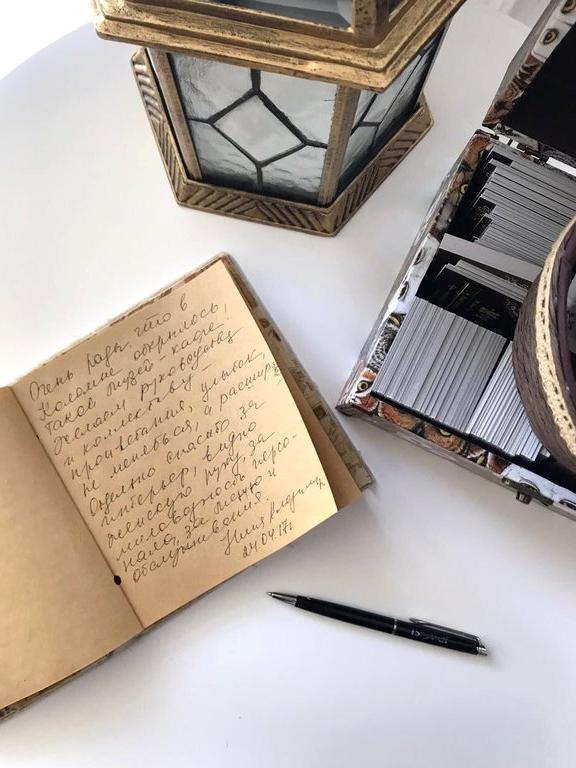 Очень рады, что в
Коломне открылось
такое музей-кафе!
Желаем руководству
и коллективу –
процветания, улыбок,
не меняться, а расшир
Отдельно спасибо за
интерьер, видно
женскую руку, за
миловидность персо-
нала, за меню и
обслуживание.
Владимир
24.04.17г.